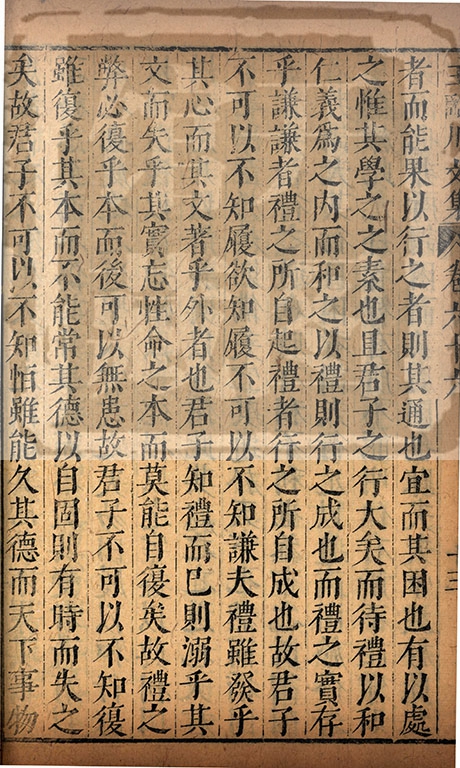 王臨川文集 卷六十六 十三
者而能果以行之者則其通也宜而其困也有以處
之惟其學之之素也且君子之行大矣而待禮以和
仁義爲之内而和之以禮則行之成也而禮之實存
乎謙謙者禮之所自起禮者行之所自成也故君子
不可以不知履欲知履不可以不知謙夫禮雖發乎
其心而其文著乎外者也君子知禮而已則溺乎其
文而失乎其實忘性命之本而莫能自復矣故禮之
弊必復乎本而後可以無患故君子不可以不知復
雖復乎其本而不能常其德以自固則有時而失之
矣故君子不可以不知恒雖能久其德而天下事物